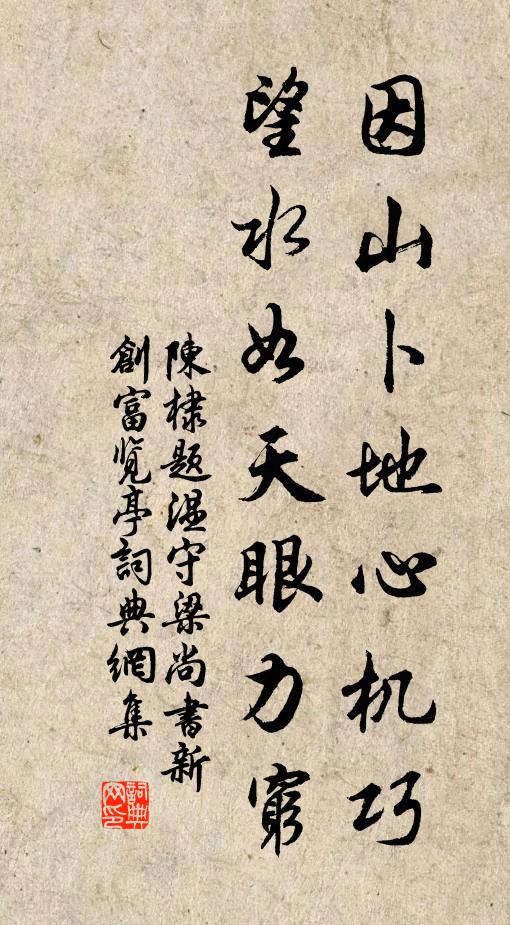 因山卜地心机巧
望水如天眼力窮
陳棣题温守梁尚書新
創富览亭詞典網集
詞典
网印